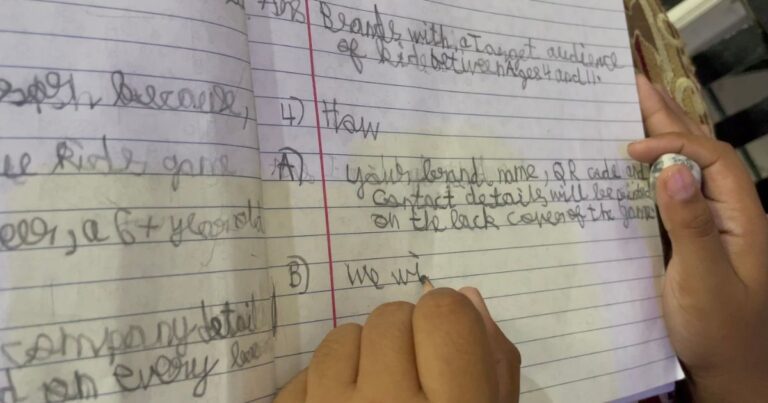 Brands with a Target audience
of kids between Ages 4 and 11.
4) How
A) Your brand name, QR code and
Contact details will be printed
on the back cover of the game
B) We wi
because,
kids game
a 6+ year old
company detail
on every